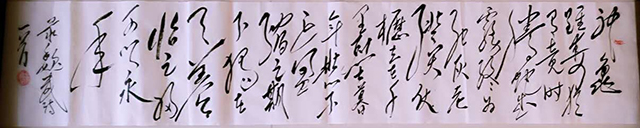 神龜
雖壽猶
有竟時
騰蛇乘
霧終為
土灰老
驥伏
櫪志在千
里烈士暮
年壯心不
已盈
縮之期
不獨在
天養
怡之福
可以永
年